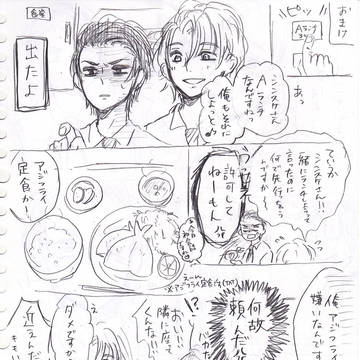 おまけ
ピッ
Aランチ
食堂
あっ
シンスケさん
Aランチ
なんですね
俺もそれに
しよっと♪
出たよ
ていうか
シンスケさん!!
一緒にランチしようって
言ったのに
何で先行っちゃう
んですかー
許可して
ねーもん
アジフライ
定食か!
俺、アジフライ
嫌いなんで
何故
頼んだ
!?
おい!!
隣に座って
くんな!!
え
ダメですか
近えんだ